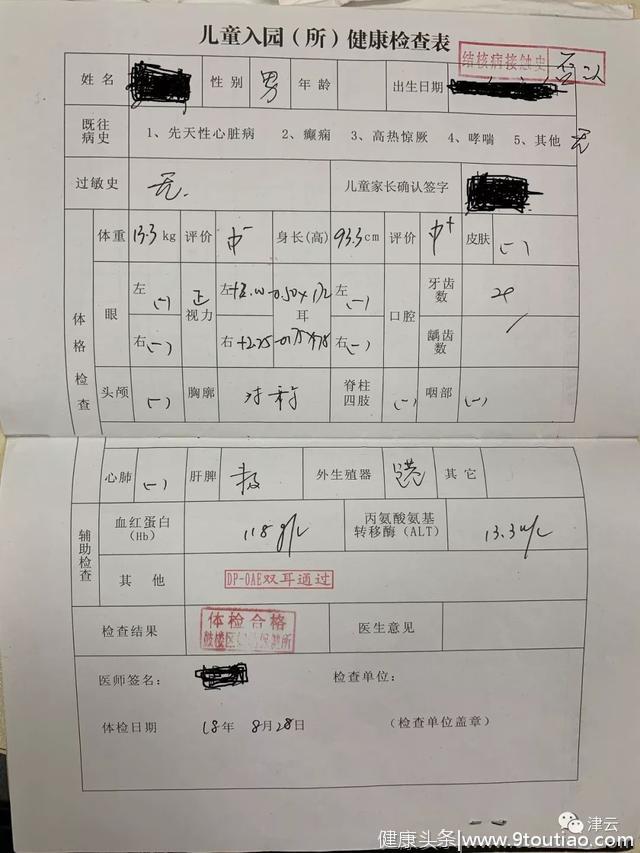 儿童入园（所）健康检查表
结核病接触史 否认
姓名 性别 男 年龄 出生日期
既往病史 1、先天性心脏病 2、癫痫 3、高热惊厥 4、哮喘 5、其他 无
过敏史 无. 儿童家长确认签字
体格检查
体重 13.3 kg 评价 中- 身长(高) 93.3 cm 评价 中+ 皮肤 (-)
眼 左 (-) 视力 左 耳 左 (-) 口腔 牙齿数
右 (-) 右 +2.75 右 (-) 龋齿数 /
头颅 (-) 胸廓 对称 脊柱四肢 (-) 咽部 (-)
心肺 (-) 肝脾 外生殖器 其它
辅助检查
血红蛋白(Hb) 118 g/L 丙氨酸氨基转移酶(ALT) 13.3 u/L
其他 DP-OAE双耳通过
检查结果 体检合格 医生意见
医师签名: 检查单位:
体检日期 18年 8月28日 (检查单位盖章)
津云
健康头条·www.9toutiao.com